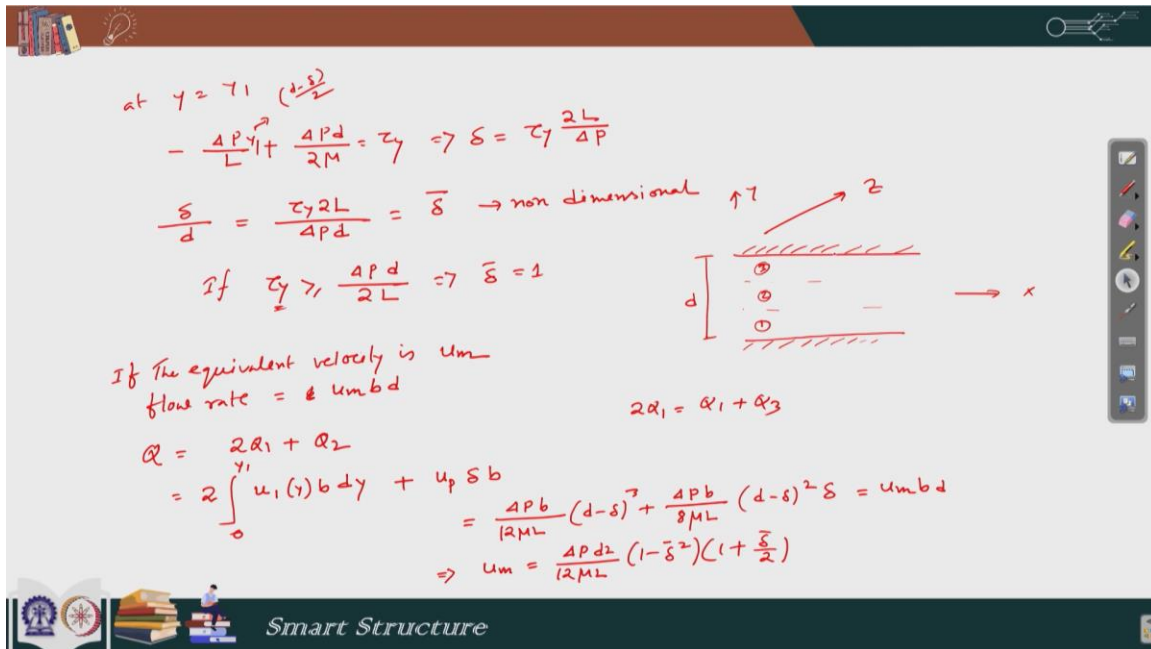 at y = y1 (d-δ)/2
- ΔP/L y1 + ΔPd/2M = τy => δ = τy 2L/ΔP
δ/d = τy2L/ΔPd = δ̄ → non dimensional
If τy ≥ ΔPd/2L => δ̄ = 1
↑Y
Z
③
②
①
d
→ x
If The equivalent velocity is um
flow rate = umbd
2Q1 = Q1 + Q3
Q = 2Q1 + Q2
= 2∫₀^y1 u1(y) b dy + up δ b
= ΔPb/12μL (d-δ)³ + ΔPb/8μL (d-δ)² δ = umbd
=> um = ΔPd2/12μL (1-δ̄²)(1+δ̄/2)
Smart Structure